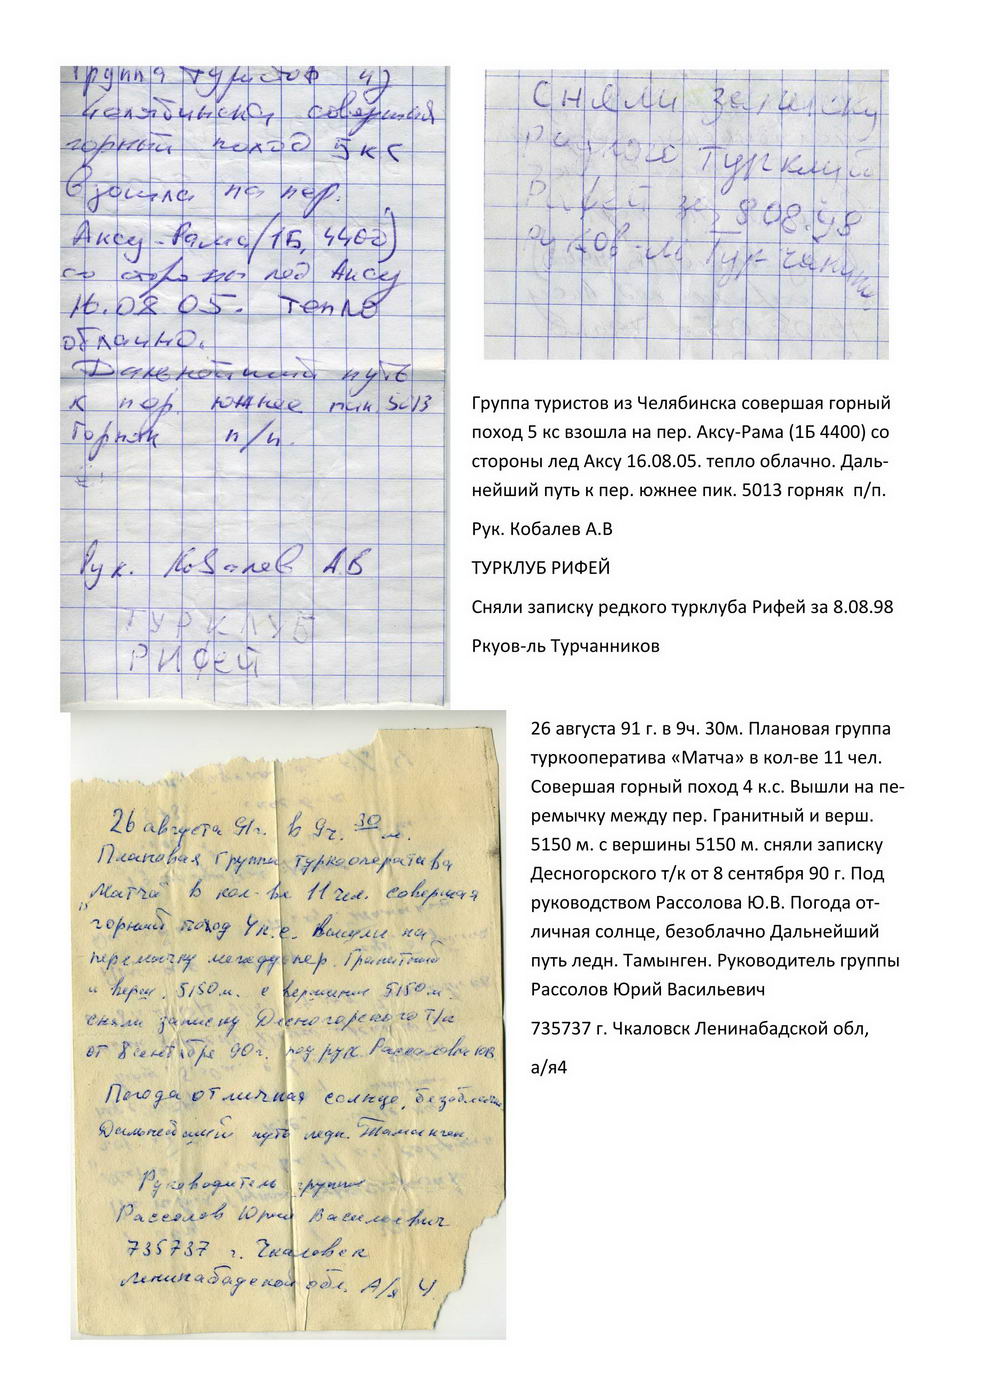 Группа туристов из
Челябинска совершая
горный поход 5 кс
взошла на пер.
Аксу-Рама (1Б, 4400)
со стороны лед Аксу
16.08 05. тепло
облачно.
Дальнейший путь
к пер. южнее пик 5013
Горняк п/п.
Рук. Ковалев А.В
ТУРКЛУБ
РИФЕЙ
Сняли записку
турклуба
Рифей за 8.08.98
руков-ль Турчанинов
Группа туристов из Челябинска совершая горный
поход 5 кс взошла на пер. Аксу-Рама (1Б 4400) со
стороны лед Аксу 16.08.05. тепло облачно. Даль-
нейший путь к пер. южнее пик. 5013 горняк п/п.
Рук. Кобалев А.В
ТУРКЛУБ РИФЕЙ
Сняли записку редкого турклуба Рифей за 8.08.98
Ркуов-ль Турчанников
26 августа 91г. в 9ч. 30 м.
Плановая группа туркооператива
"Матча" в кол-ве 11 чел. совершая
горный поход 4 к.с. вышли на
перемычку между пер. Гранитный
и верш. 5150 м. с вершины 5150 м
сняли записку Десногорского т/к
от 8 сентября 90г. под рук. Рассолова Ю.В.
Погода отличная солнце, безоблачно
Дальнейший путь ледн. Тамынген.
Руководитель группы
Рассолов Юрий Васильевич
735737 г. Чкаловск
Ленинабадской обл. А/я 4.
26 августа 91 г. в 9ч. 30м. Плановая группа
туркооператива «Матча» в кол-ве 11 чел.
Совершая горный поход 4 к.с. Вышли на пе-
ремычку между пер. Гранитный и верш.
5150 м. с вершины 5150 м. сняли записку
Десногорского т/к от 8 сентября 90 г. Под
руководством Рассолова Ю.В. Погода от-
личная солнце, безоблачно Дальнейший
путь ледн. Тамынген. Руководитель группы
Рассолов Юрий Васильевич
735737 г. Чкаловск Ленинабадской обл,
а/я4